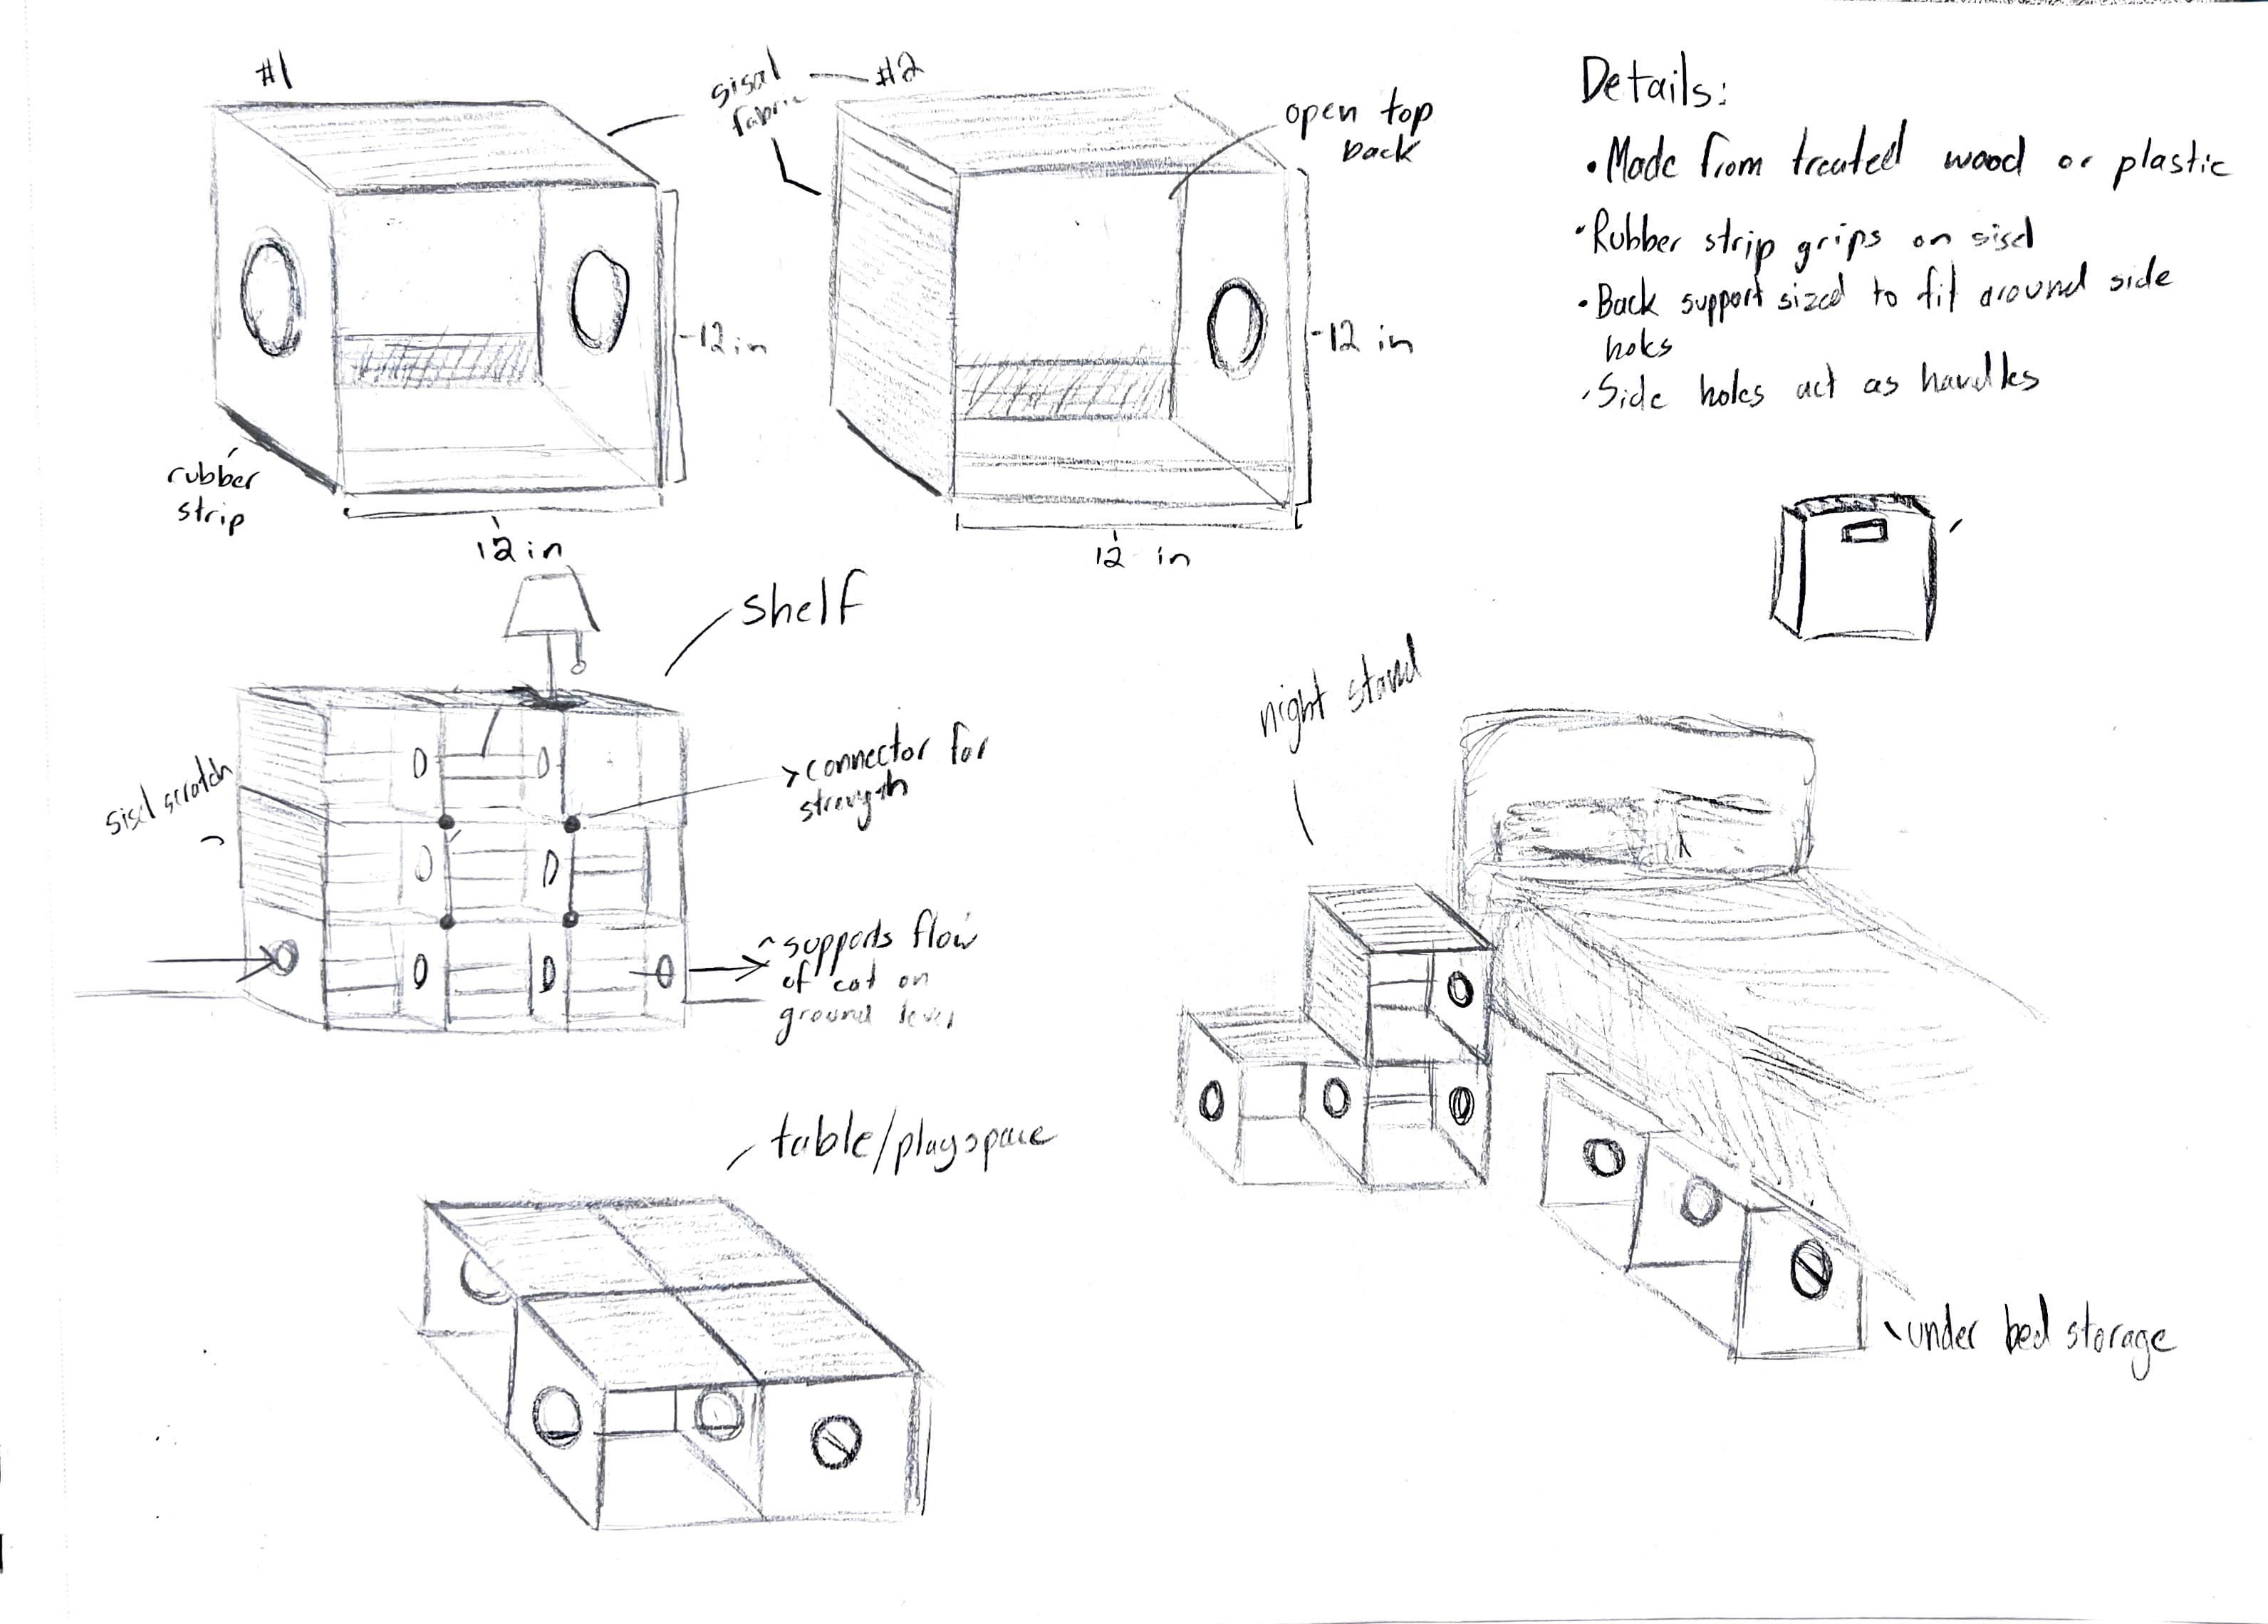 #1
sisal
fabric
#2
open top
back
rubber
strip
12 in
12 in
12 in
12 in
Details:
• Made from treated wood or plastic
• Rubber strip grips on sisal
• Back support sized to fit around side
holes
• Side holes act as handles
shelf
sisal scratch
connector for
strength
supports flow
of cat on
ground level
night stand
table/playspace
under bed storage